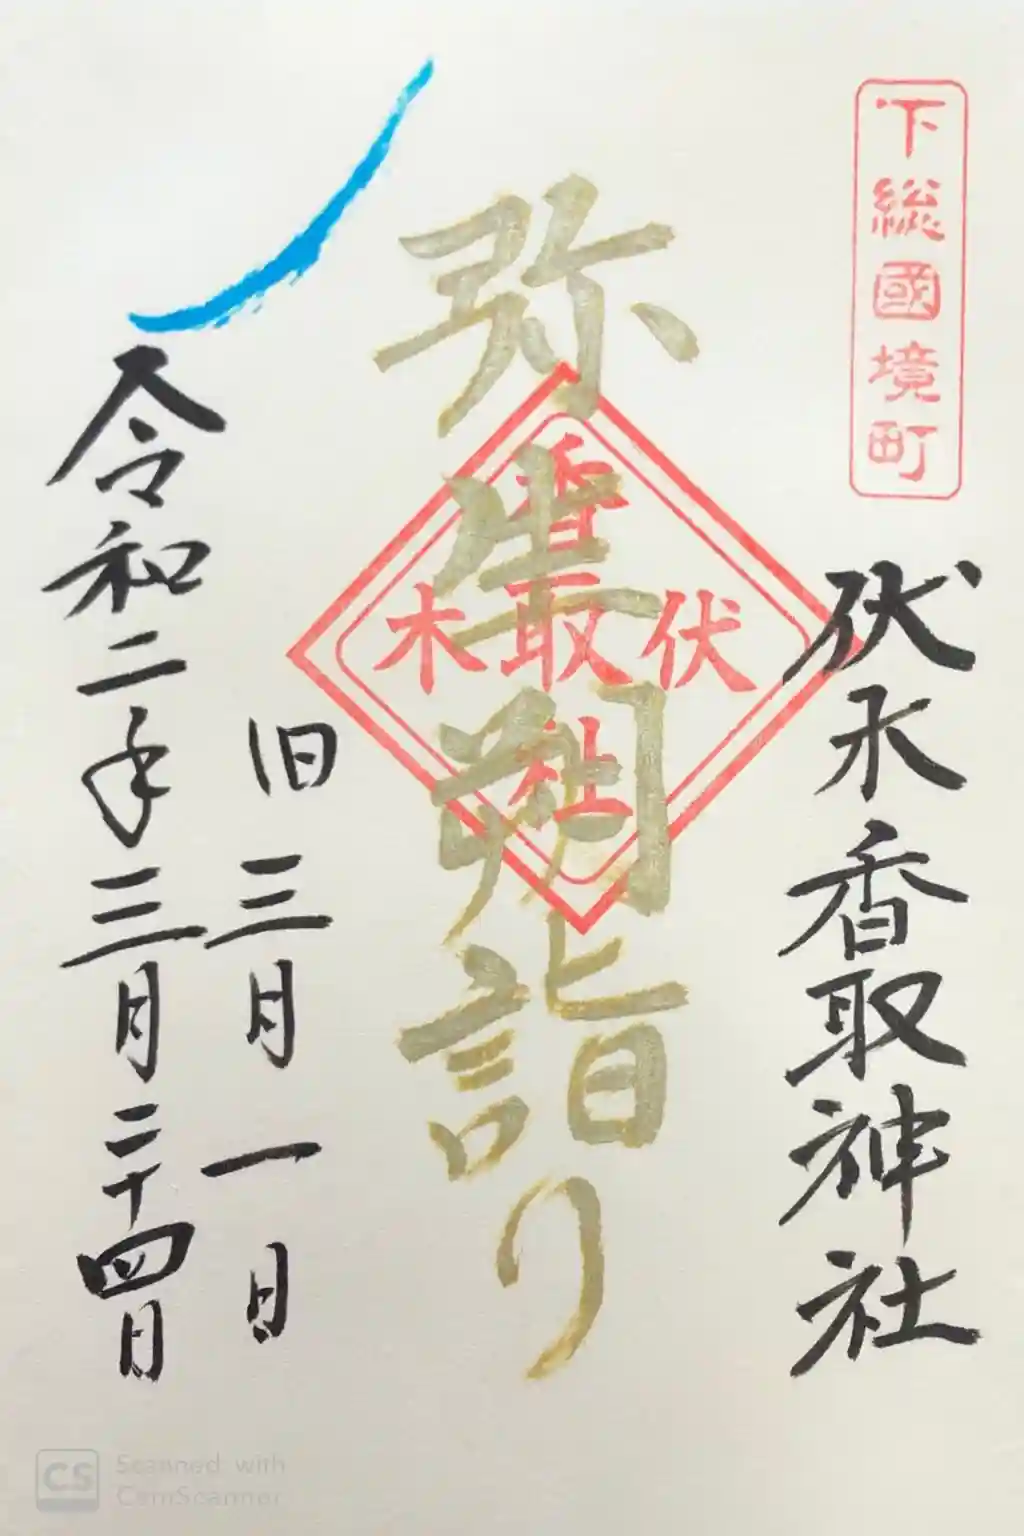 下総國境町
伏木香取神社
弥生朔詣り
香取社
伏木
旧三月一日
令和二年三月二十四日
CS Scanned with
CamScanner